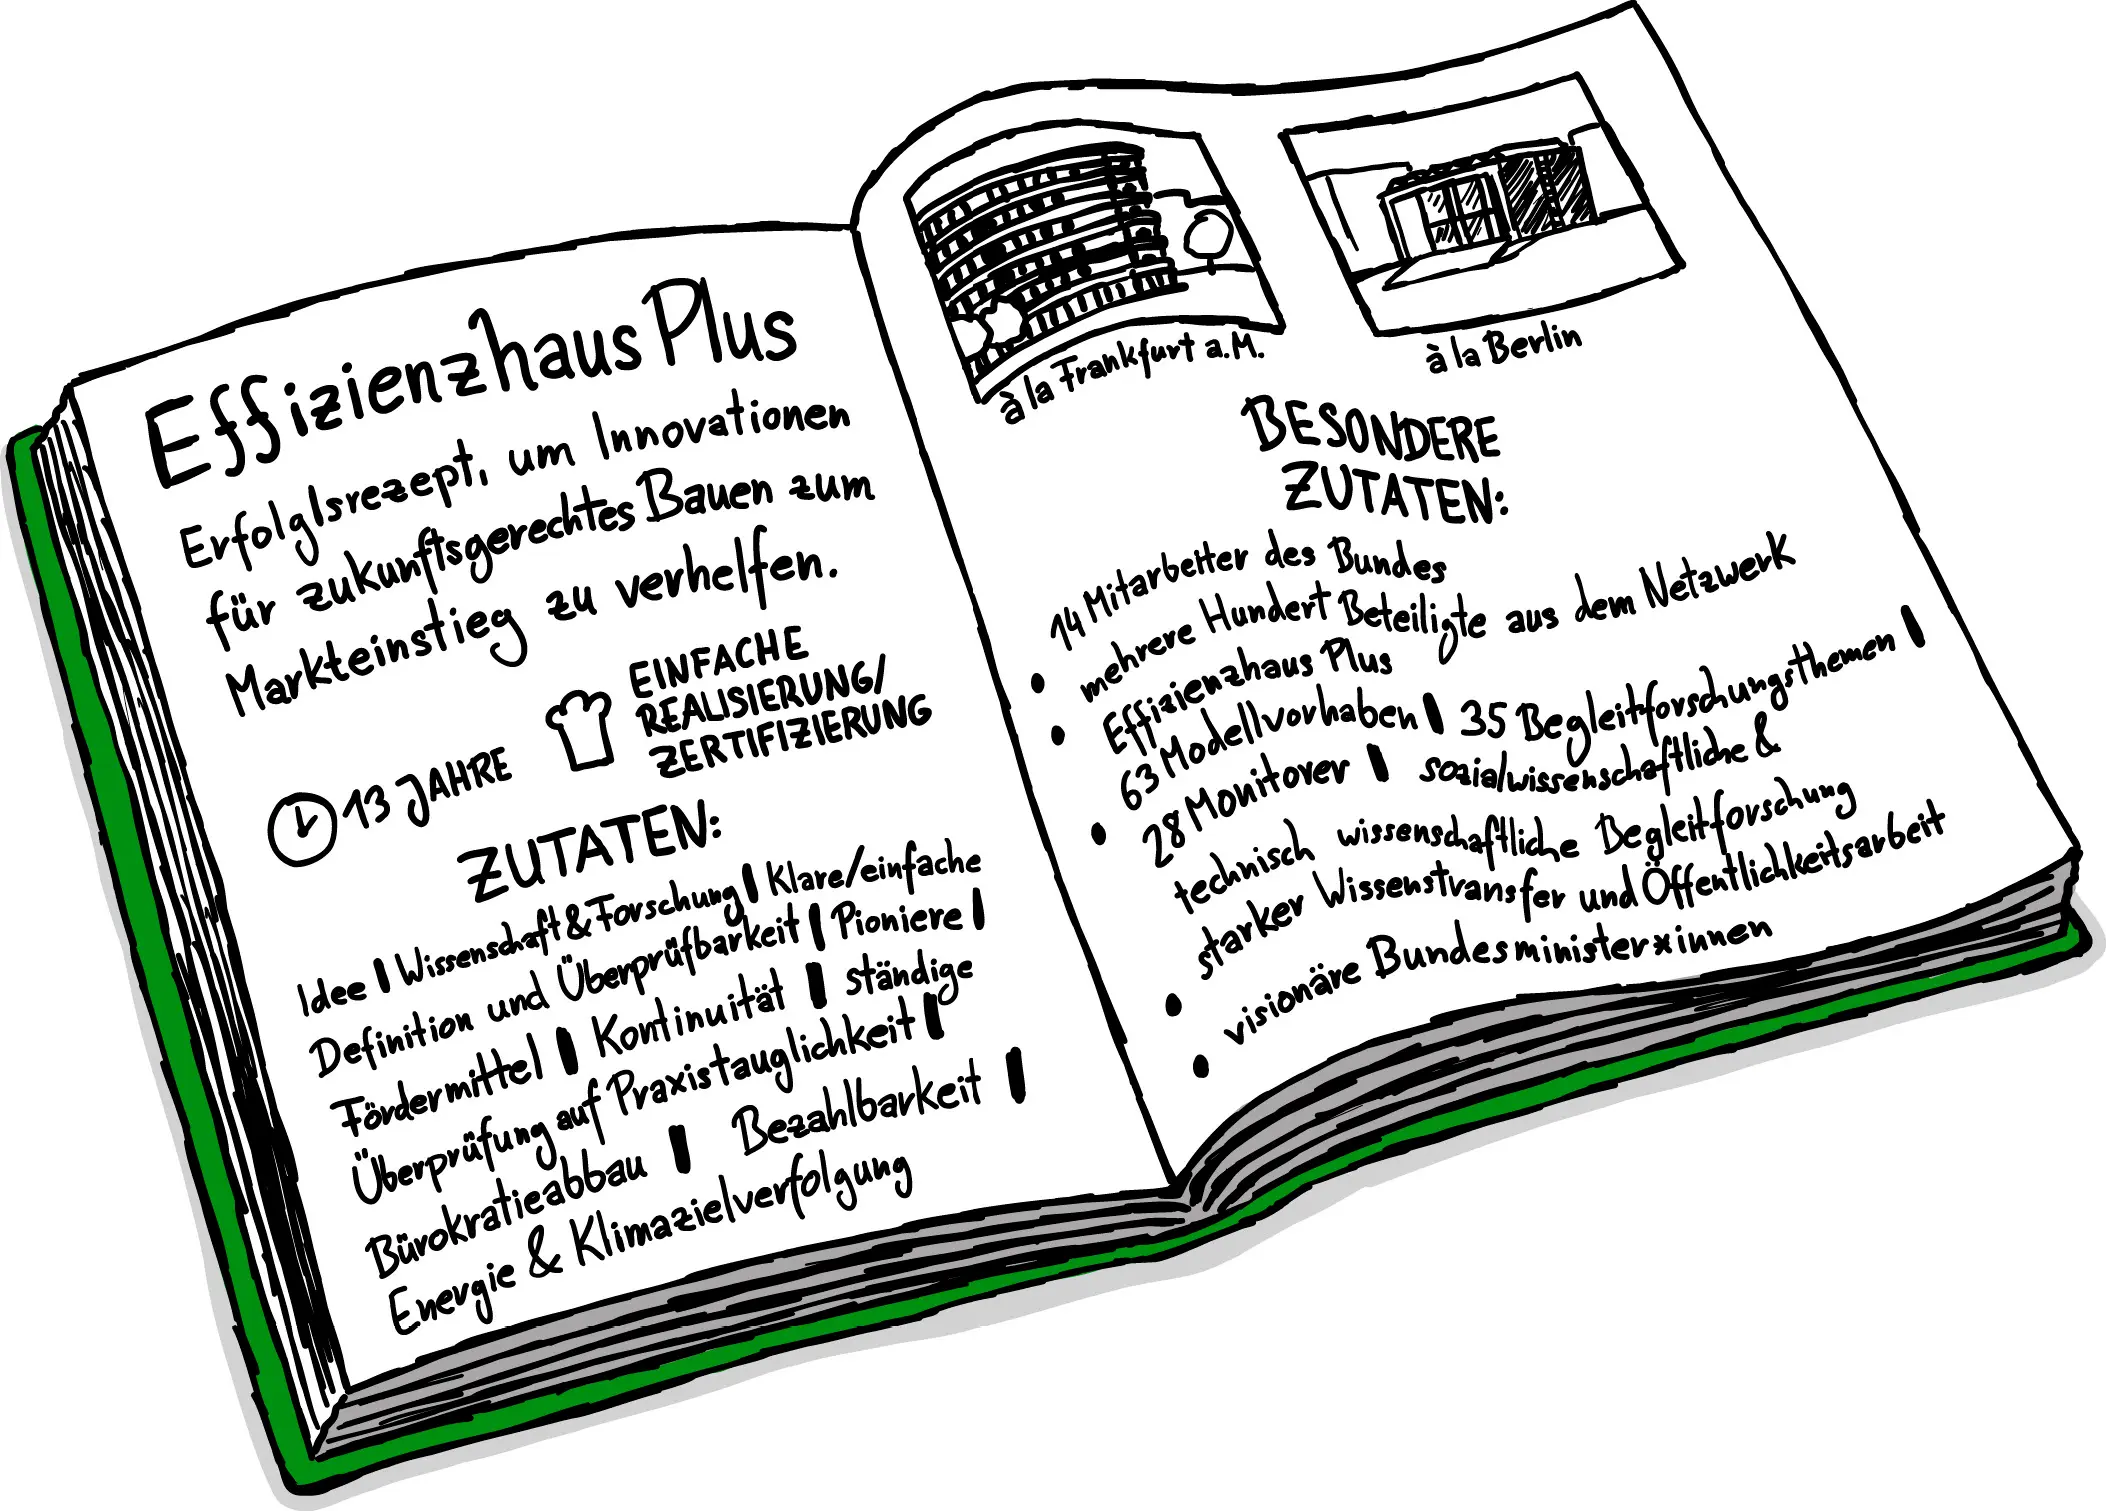 Effizienzhaus Plus
Erfolglsrezept, um Innovationen
für zukunftsgerechtes Bauen zum
Markteinstieg zu verhelfen.
13 JAHRE
EINFACHE
REALISIERUNG/
ZERTIFIZIERUNG
ZUTATEN:
Idee | Wissenschaft & Forschung | Klare/einfache
Definition und Überprüfbarkeit | Pioniere |
Fördermittel | Kontinuität | ständige
Überprüfung auf Praxistauglichkeit |
Bürokratieabbau | Bezahlbarkeit |
Energie & Klimazielverfolgung
à la Frankfurt a.M.
à la Berlin
BESONDERE
ZUTATEN:
14 Mitarbeiter des Bundes
• mehrere Hundert Beteiligte aus dem Netzwerk
Effizienzhaus Plus
• 63 Modellvorhaben | 35 Begleitforschungsthemen |
28 Monitorer | sozialwissenschaftliche &
• technisch wissenschaftliche Begleitforschung
starker Wissenstransfer und Öffentlichkeitsarbeit
• visionäre Bundesministerxinnen
•